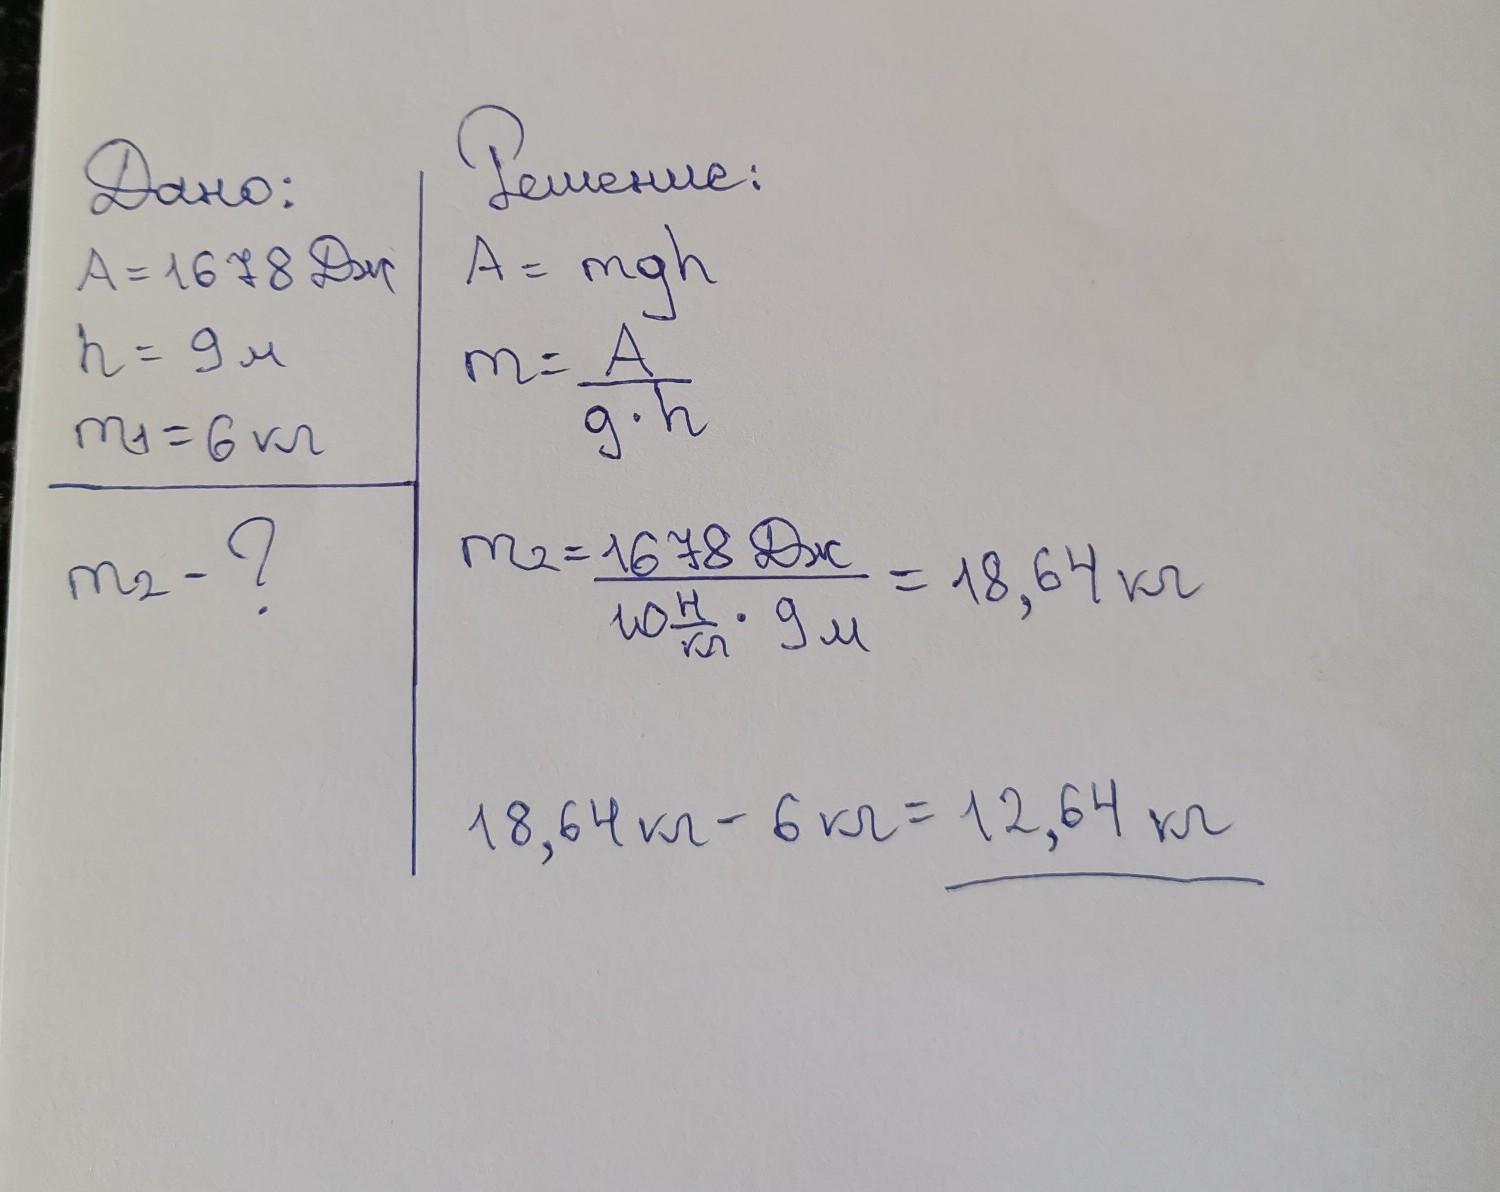 Дано:
A = 1678 Дж
h = 9 м
m1 = 6 кг
m2 - ?
Решение:
A = mgh
m = A / g · h
m2 = 1678 Дж / 10 Н/кг · 9 м = 18,64 кг
18,64 кг - 6 кг = 12,64 кг